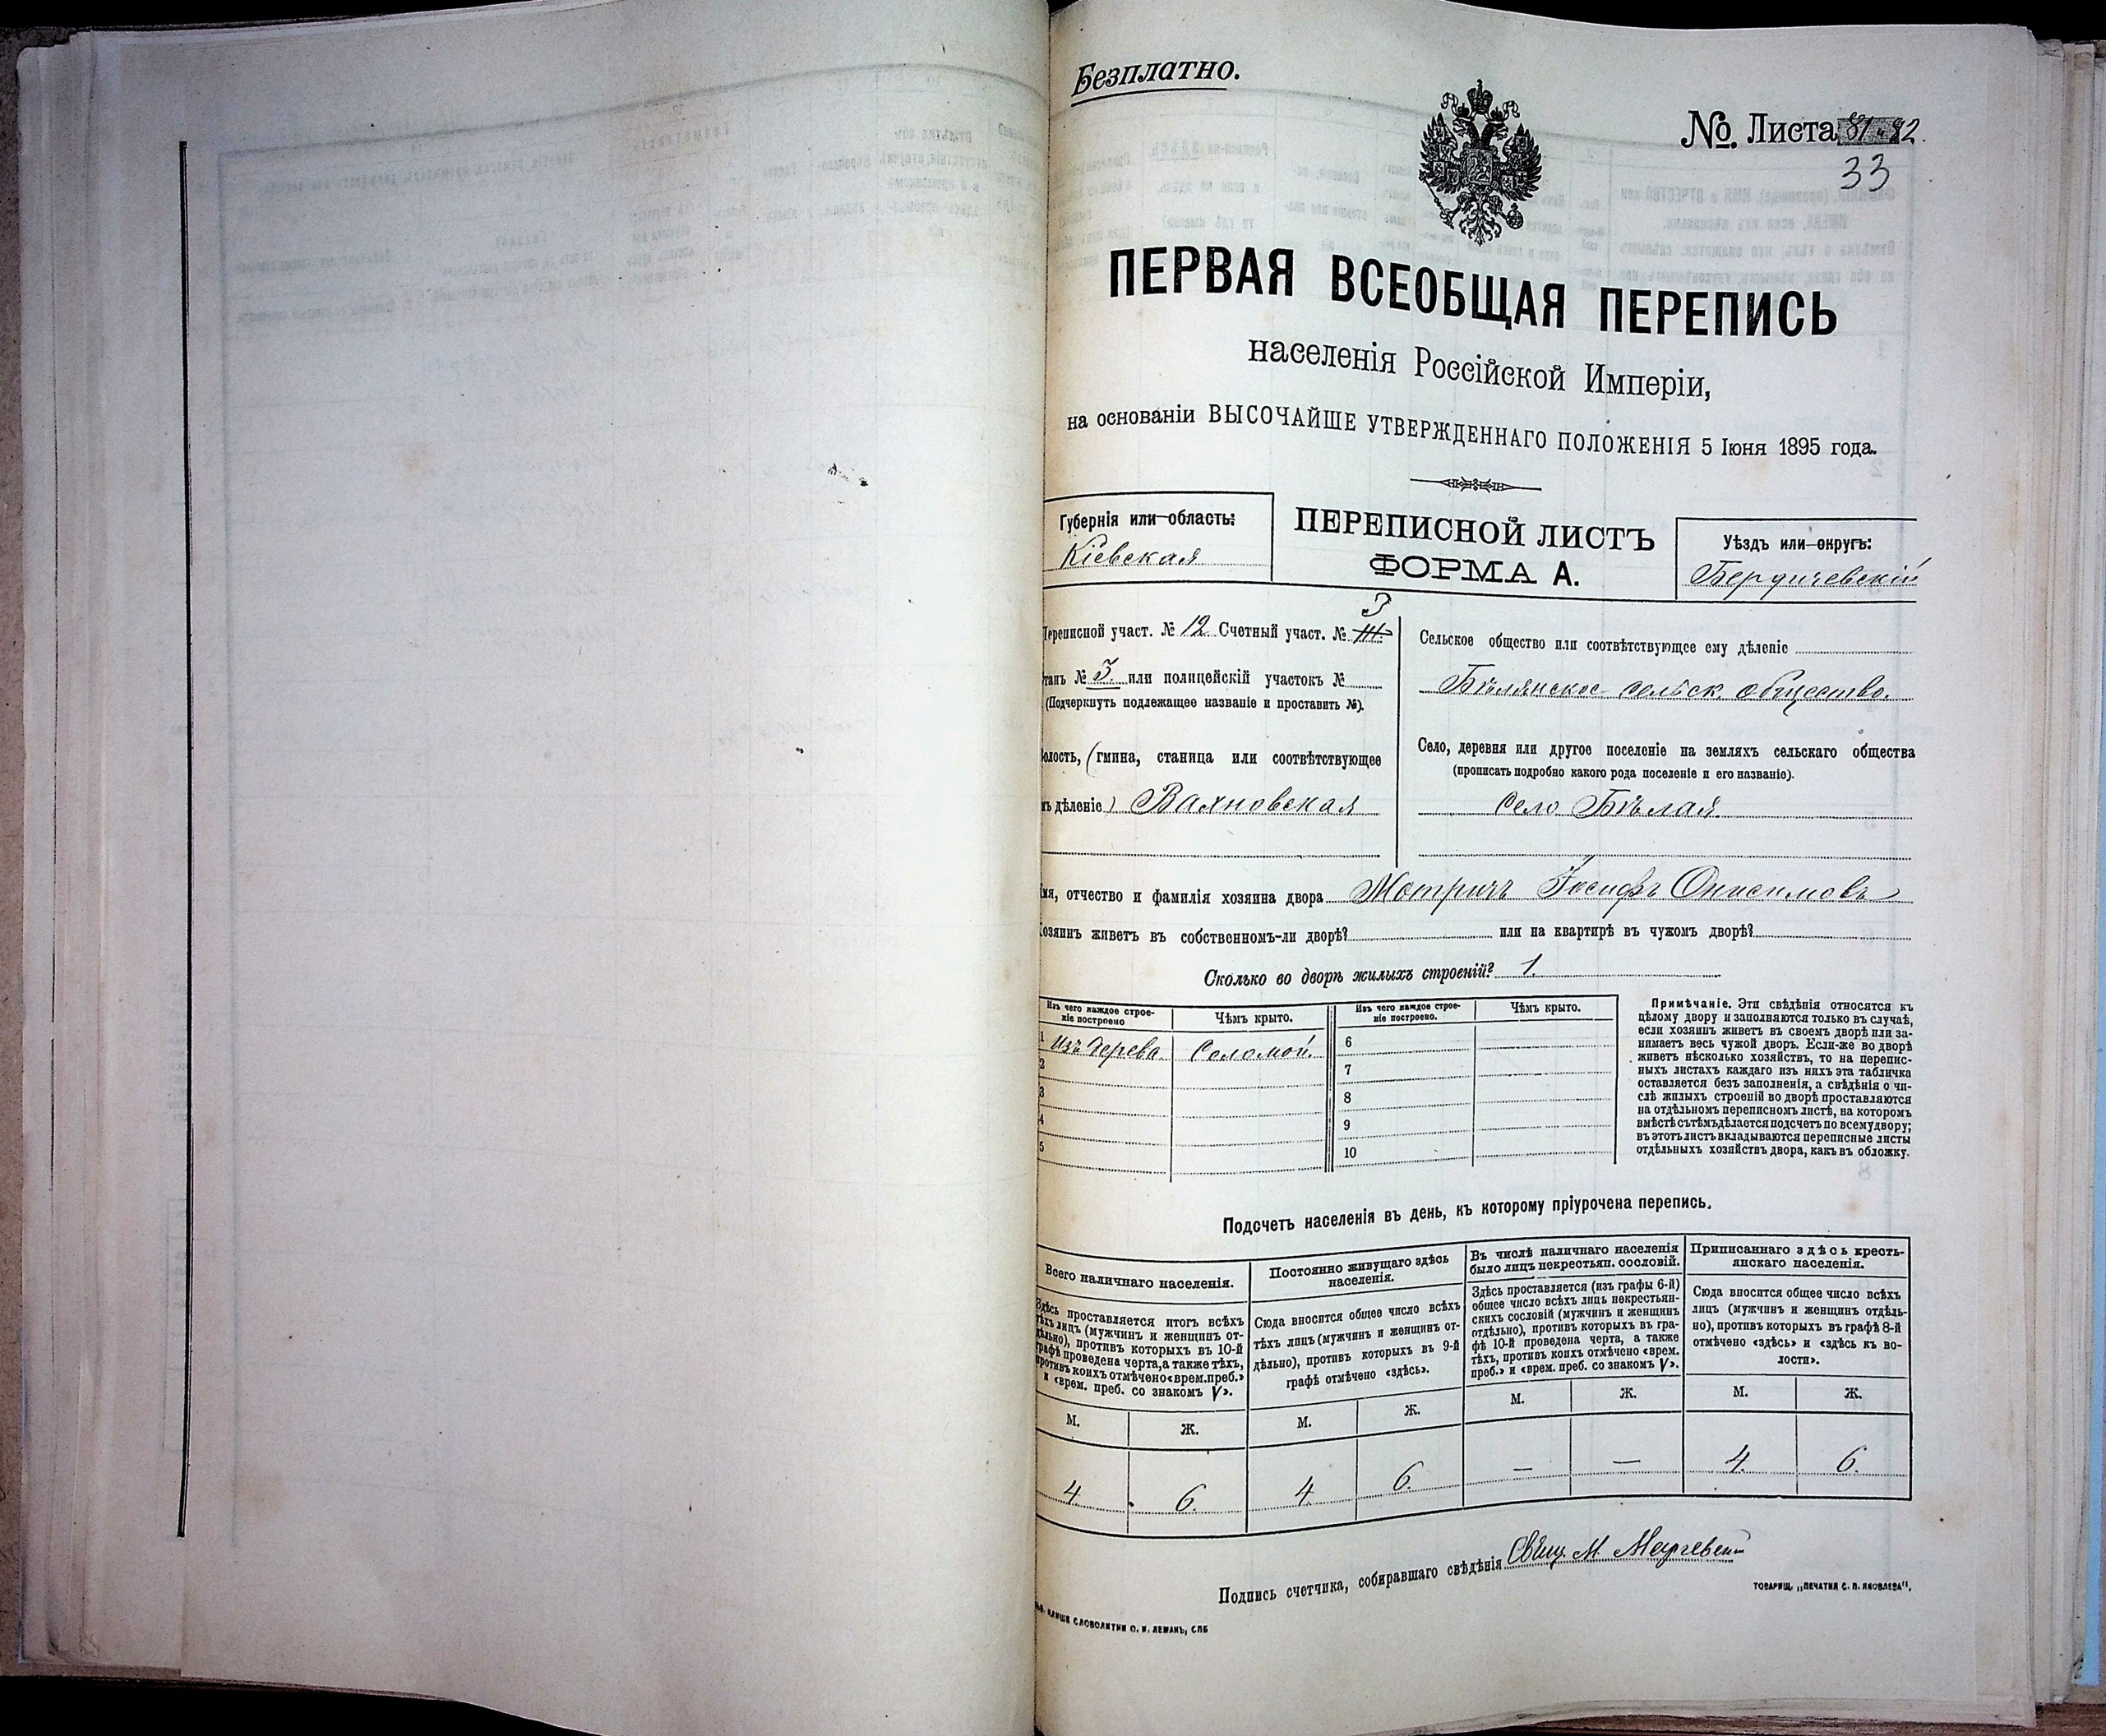 Безплатно.
№ Листа 81-82.
33
ПЕРВАЯ ВСЕОБЩАЯ ПЕРЕПИСЬ
населенія Россійской Имперіи,
на основаніи ВЫСОЧАЙШЕ УТВЕРЖДЕННАГО ПОЛОЖЕНІЯ 5 Іюня 1895 года.
Губернія или область:
Кіевская
ПЕРЕПИСНОЙ ЛИСТЪ
ФОРМА А.
Уѣздъ или округъ:
Бердичевскій
3
Переписной участ. № 12 Счетный участ. № III
Станъ № 3. или полицейскій участокъ №
(Подчеркнуть подлежащее названіе и проставить №).
Волость, (гмина, станица или соотвѣтствующее
имъ дѣленіе) Вахновская
Сельское общество или соотвѣтствующее ему дѣленіе
Бѣлянское сельск. общество.
Село, деревня или другое поселеніе на земляхъ сельскаго общества
(прописать подробно какого рода поселеніе и его названіе).
Село Бѣлая.
Имя, отчество и фамилія хозяина двора Мотричъ Іосифъ Онисимовъ
Хозяинъ живетъ въ собственномъ-ли дворѣ? или на квартирѣ въ чужомъ дворѣ?
Сколько во дворѣ жилыхъ строеній? 1.
Изъ чего каждое строе-
ніе построено
Чѣмъ крыто.
Изъ чего каждое строе-
ніе построено.
Чѣмъ крыто.
1 Изъ дерева Соломой. 6
2 7
3 8
4 9
5 10
Примѣчаніе. Эти свѣдѣнія относятся къ
цѣлому двору и заполняются только въ случаѣ,
если хозяинъ живетъ въ своемъ дворѣ или за-
нимаетъ весь чужой дворъ. Если-же во дворѣ
живетъ нѣсколько хозяйствъ, то на перепис-
ныхъ листахъ каждаго изъ нихъ эта табличка
оставляется безъ заполненія, а свѣдѣнія о чи-
слѣ жилыхъ строеній во дворѣ проставляются
на отдѣльномъ переписномъ листѣ, на которомъ
вмѣстѣ съ тѣмъ дѣлается подсчетъ по всему двору;
въ этотъ листъ вкладываются переписные листы
отдѣльныхъ хозяйствъ двора, какъ въ обложку.
Подсчетъ населенія въ день, къ которому пріурочена перепись.
Всего наличнаго населенія.
Здѣсь проставляется итогъ всѣхъ
тѣхъ лицъ (мужчинъ и женщинъ от-
дѣльно), противъ которыхъ въ 10-й
графѣ проведена черта, а также тѣхъ,
противъ коихъ отмѣчено «врем. преб.»
и «врем. преб. со знакомъ V».
М. Ж.
4 6.
Постоянно живущаго здѣсь
населенія.
Сюда вносится общее число всѣхъ
тѣхъ лицъ (мужчинъ и женщинъ от-
дѣльно), противъ которыхъ въ 9-й
графѣ отмѣчено «здѣсь».
М. Ж.
4 6.
Въ числѣ наличнаго населенія
было лицъ некрестьян. сословій.
Здѣсь проставляется (изъ графы 6-й)
общее число всѣхъ лицъ некрестьян-
скихъ сословій (мужчинъ и женщинъ
отдѣльно), противъ которыхъ въ гра-
фѣ 10-й проведена черта, а также
тѣхъ, противъ коихъ отмѣчено «врем.
преб.» и «врем. преб. со знакомъ V».
М. Ж.
— —
Приписаннаго здѣсь кресть-
янскаго населенія.
Сюда вносится общее число всѣхъ
лицъ (мужчинъ и женщинъ отдѣль-
но), противъ которыхъ въ графѣ 8-й
отмѣчено «здѣсь» и «здѣсь къ во-
лости».
М. Ж.
4 6.
Подпись счетчика, собиравшаго свѣдѣнія Свящ. М.
КЛИШЕ СЛОВОЛИТНИ О. И. ЛЕМАНЪ, СПБ
ТОВАРИЩ. „ПЕЧАТНЯ С. П. ЯКОВЛЕВА".